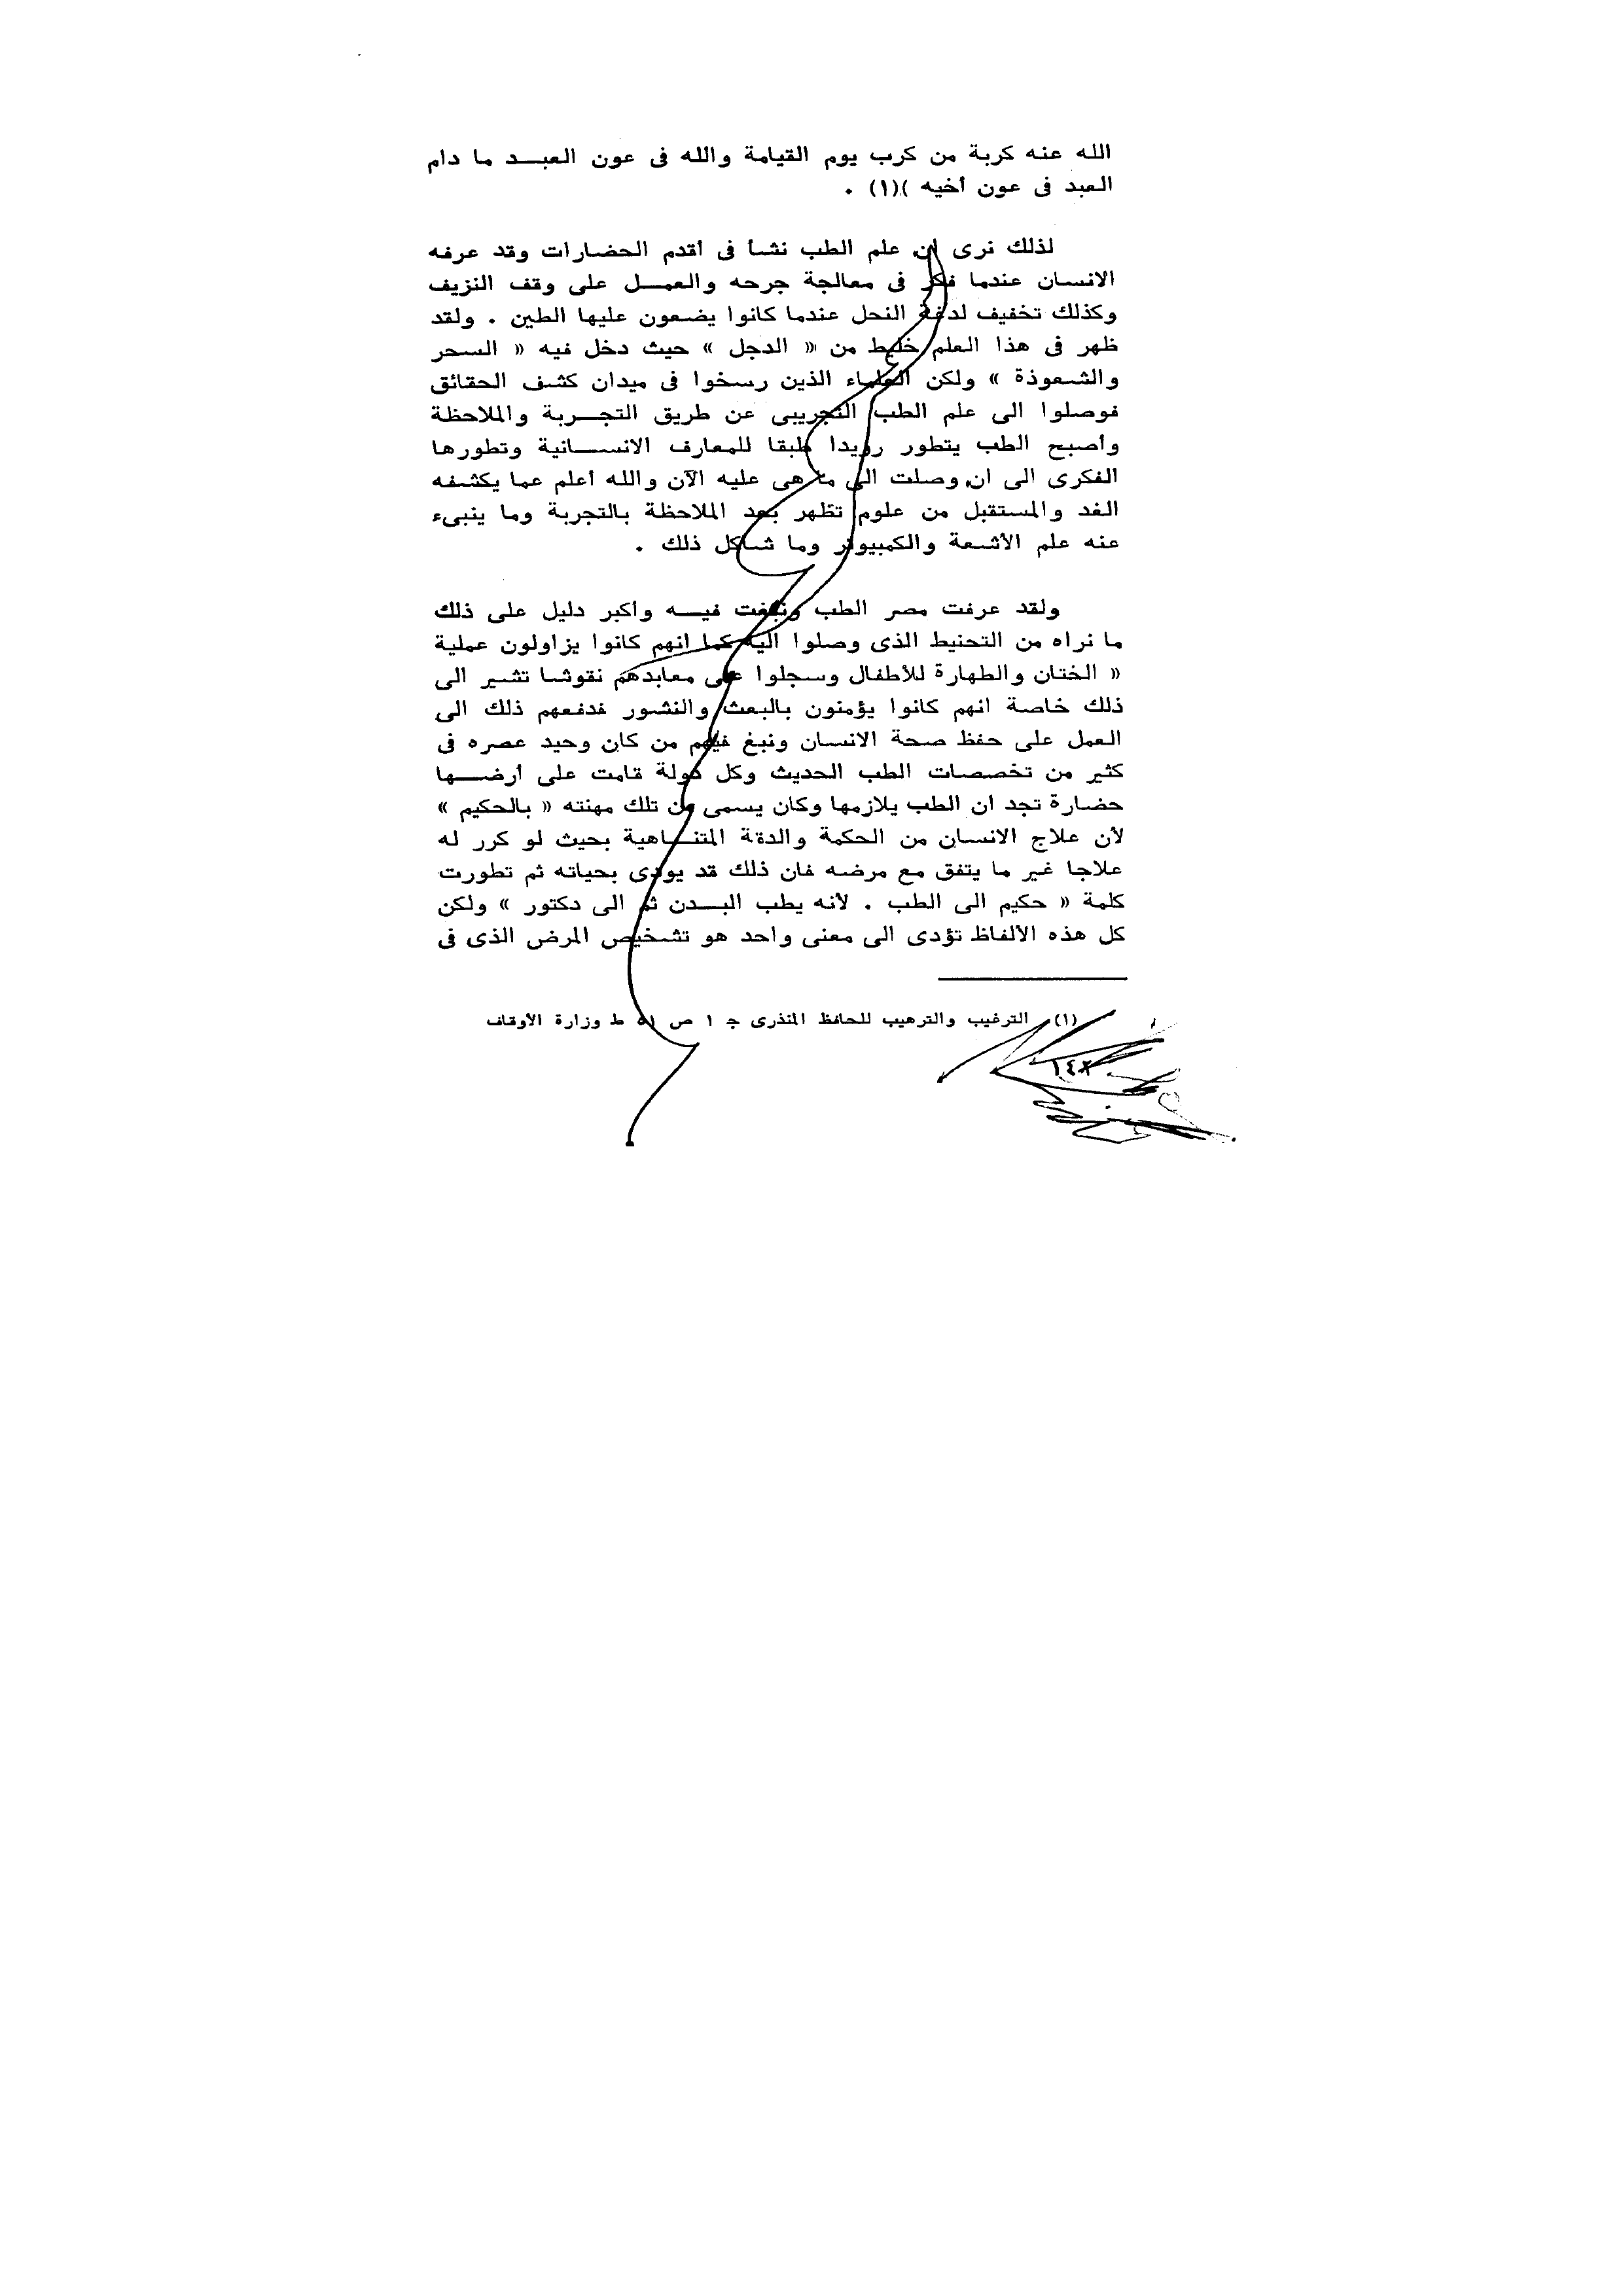 الله عنه كربة من كرب يوم القيامة والله فى عون العبـــد ما دام
العبد فى عون أخيه )(١) .
لذلك نرى ان علم الطب نشأ فى أقدم الحضارات وقد عرفه
الانسان عندما فكر فى معالجة جرحه والعمـــل على وقف النزيف
وكذلك تخفيف لدغة النحل عندما كانوا يضعون عليها الطين . ولقد
ظهر فى هذا العلم خليط من « الدجل » حيث دخل فيه « السحر
والشعوذة » ولكن العلماء الذين رسخوا فى ميدان كشف الحقائق
فوصلوا الى علم الطب التجريبى عن طريق التجـــربة والملاحظة
وأصبح الطب يتطور رويدا طبقا للمعارف الانســـانية وتطورها
الفكرى الى ان وصلت الى ما هى عليه الآن والله أعلم عما يكشفه
الغد والمستقبل من علوم تظهر بعد الملاحظة بالتجربة وما ينبىء
عنه علم الأشعة والكمبيوتر وما شاكل ذلك .
ولقد عرفت مصر الطب ونبغت فيـــه وأكبر دليل على ذلك
ما نراه من التحنيط الذى وصلوا اليه كما انهم كانوا يزاولون عملية
« الختان والطهارة للأطفال وسجلوا على معابدهم نقوشا تشير الى
ذلك خاصة انهم كانوا يؤمنون بالبعث والنشور فدفعهم ذلك الى
العمل على حفظ صحة الانسان ونبغ فيهم من كان وحيد عصره فى
كثير من تخصصات الطب الحديث وكل دولة قامت على أرضـــها
حضارة تجد ان الطب يلازمها وكان يسمى من تلك مهنته « بالحكيم »
لأن علاج الانسان من الحكمة والدقة المتنـــاهية بحيث لو كرر له
علاجا غير ما يتفق مع مرضه فان ذلك قد يودى بحياته ثم تطورت
كلمة « حكيم الى الطب . لأنه يطب البـــدن ثم الى دكتور » ولكن
كل هذه الألفاظ تؤدى الى معنى واحد هو تشخيص المرض الذى فى
(١) الترغيب والترهيب للحافظ المنذرى جـ ١ ص ٥١ ط وزارة الأوقاف